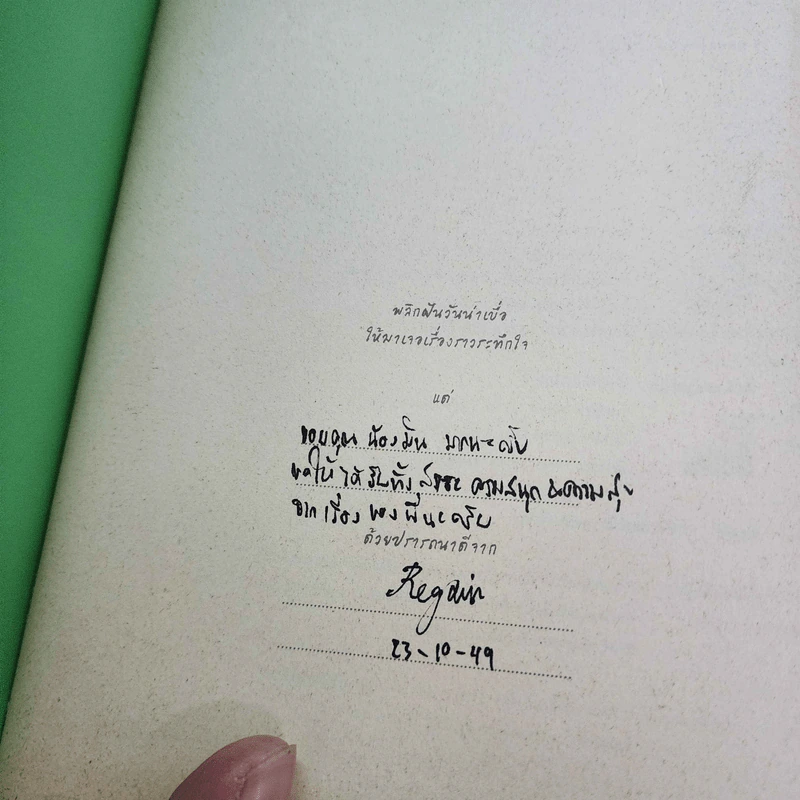 พลิกฝันวันน่าเบื่อ
ให้มาเจอเรื่องราวระทึกใจ
แด่
ขอบคุณ น้องมิ้น มากนะครับ
ขอให้ได้รับทั้งสาระ ความสนุก และความสุข
จากเรื่องของพี่นะครับ
ด้วยปรารถนาดีจาก
Regain
23-10-49